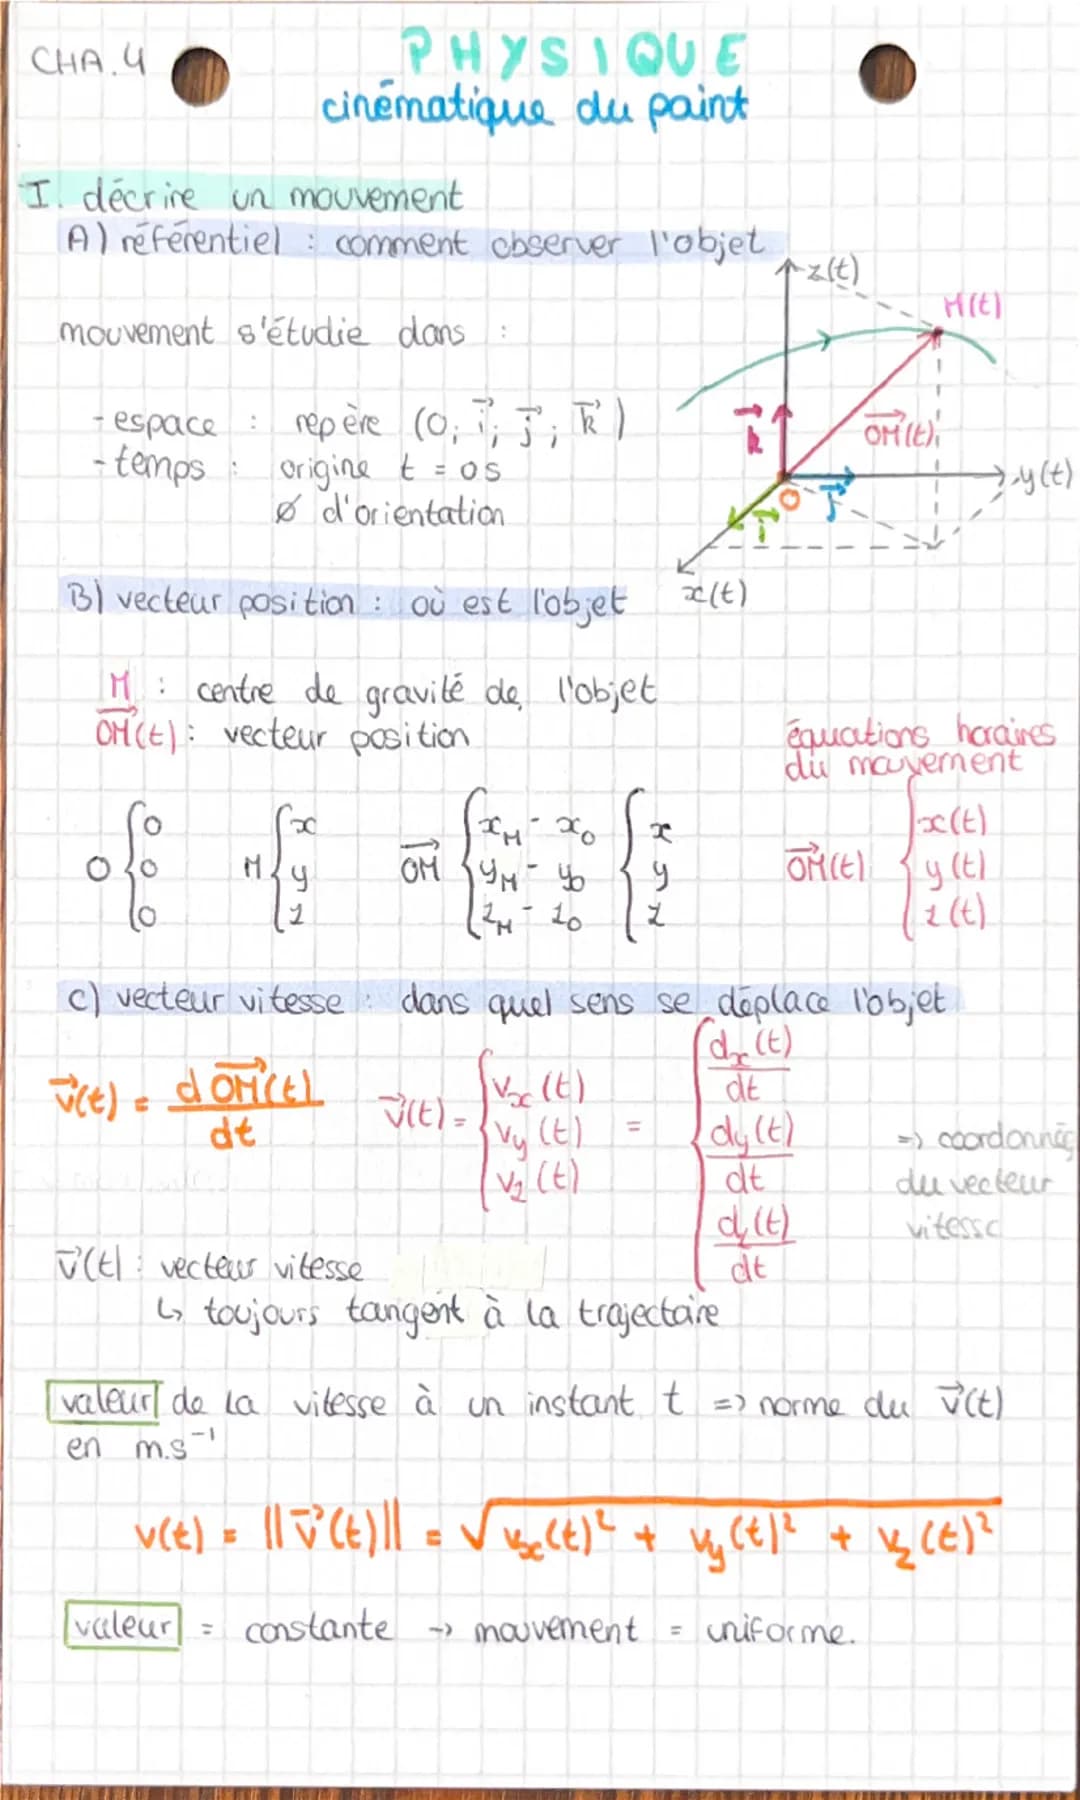 CHA.4
PHYSIQUE
cinématique du point
I. décrire un mouvement
A) référentiel : comment observer l'objet
mouvement s'étudie dans :
- espace : repère (O; i⃗; j⃗; k⃗)
- temps : origine t = 0 s
ø d'orientation
z(t)
M(t)
k⃗
OM⃗(t)
y(t)
O
j⃗
i⃗
x(t)
B) vecteur position : où est l'objet
M : centre de gravité de l'objet
OM⃗(t) : vecteur position
équations horaires
du mouvement
O { 0 0 0
M { x y z
OM⃗ { x_M - x_O y_M - y_O z_M - z_O { x y z
OM⃗(t) { x(t) y(t) z(t)
C) vecteur vitesse : dans quel sens se déplace l'objet
v⃗(t) = dOM⃗(t)/dt
v⃗(t) = { v_x(t) v_y(t) v_z(t) = { d_x(t)/dt d_y(t)/dt d_z(t)/dt
=> coordonnées
du vecteur
vitesse
v⃗(t) : vecteur vitesse
↳ toujours tangent à la trajectoire
valeur de la vitesse à un instant t => norme du v⃗(t)
en m.s⁻¹
v(t) = ||v⃗(t)|| = √v_x(t)² + v_y(t)² + v_z(t)²
valeur = constante → mouvement = uniforme.